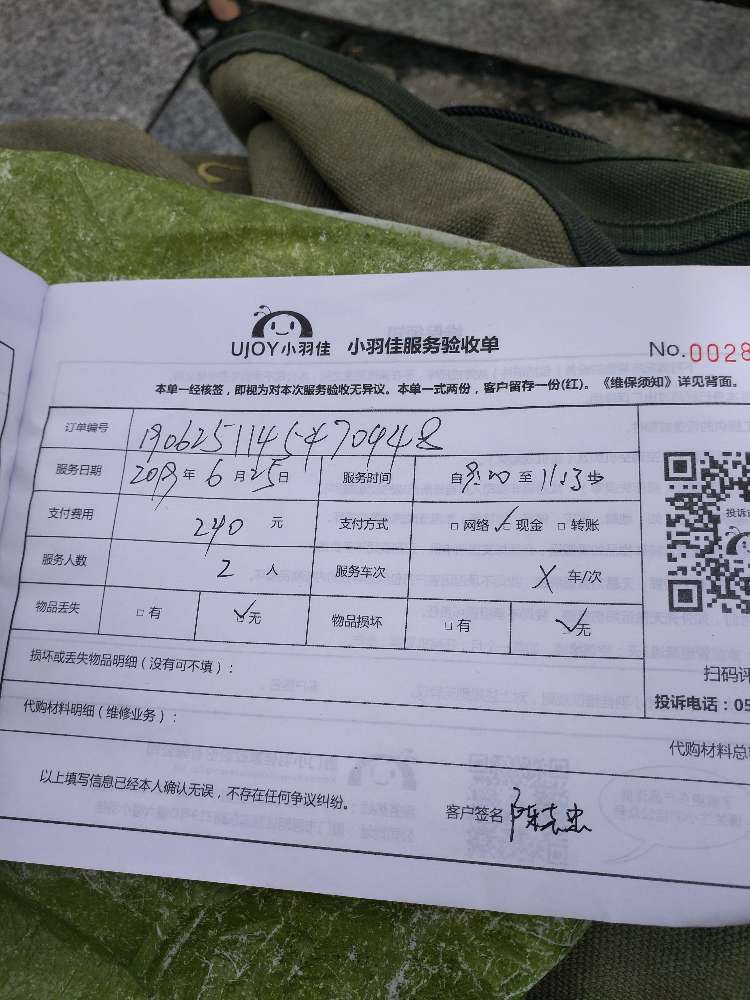 UJOY小羽佳 小羽佳服务验收单 No.0028
本单一经核签，即视为对本次服务验收无异议。本单一式两份，客户留存一份(红)。《维保须知》详见背面。
订单编号 1906251145470948
服务日期 2019年6月25日 服务时间 自8:20至11:13步
支付费用 240元 支付方式 □网络 ✓现金 □转账
服务人数 2人 服务车次 X 车/次
物品丢失 □有 ✓无 物品损坏 □有 ✓无
损坏或丢失物品明细（没有可不填）：
扫码评
投诉电话：05
代购材料明细（维修业务）：
代购材料总
以上填写信息已经本人确认无误，不存在任何争议纠纷。 客户签名 陈志忠